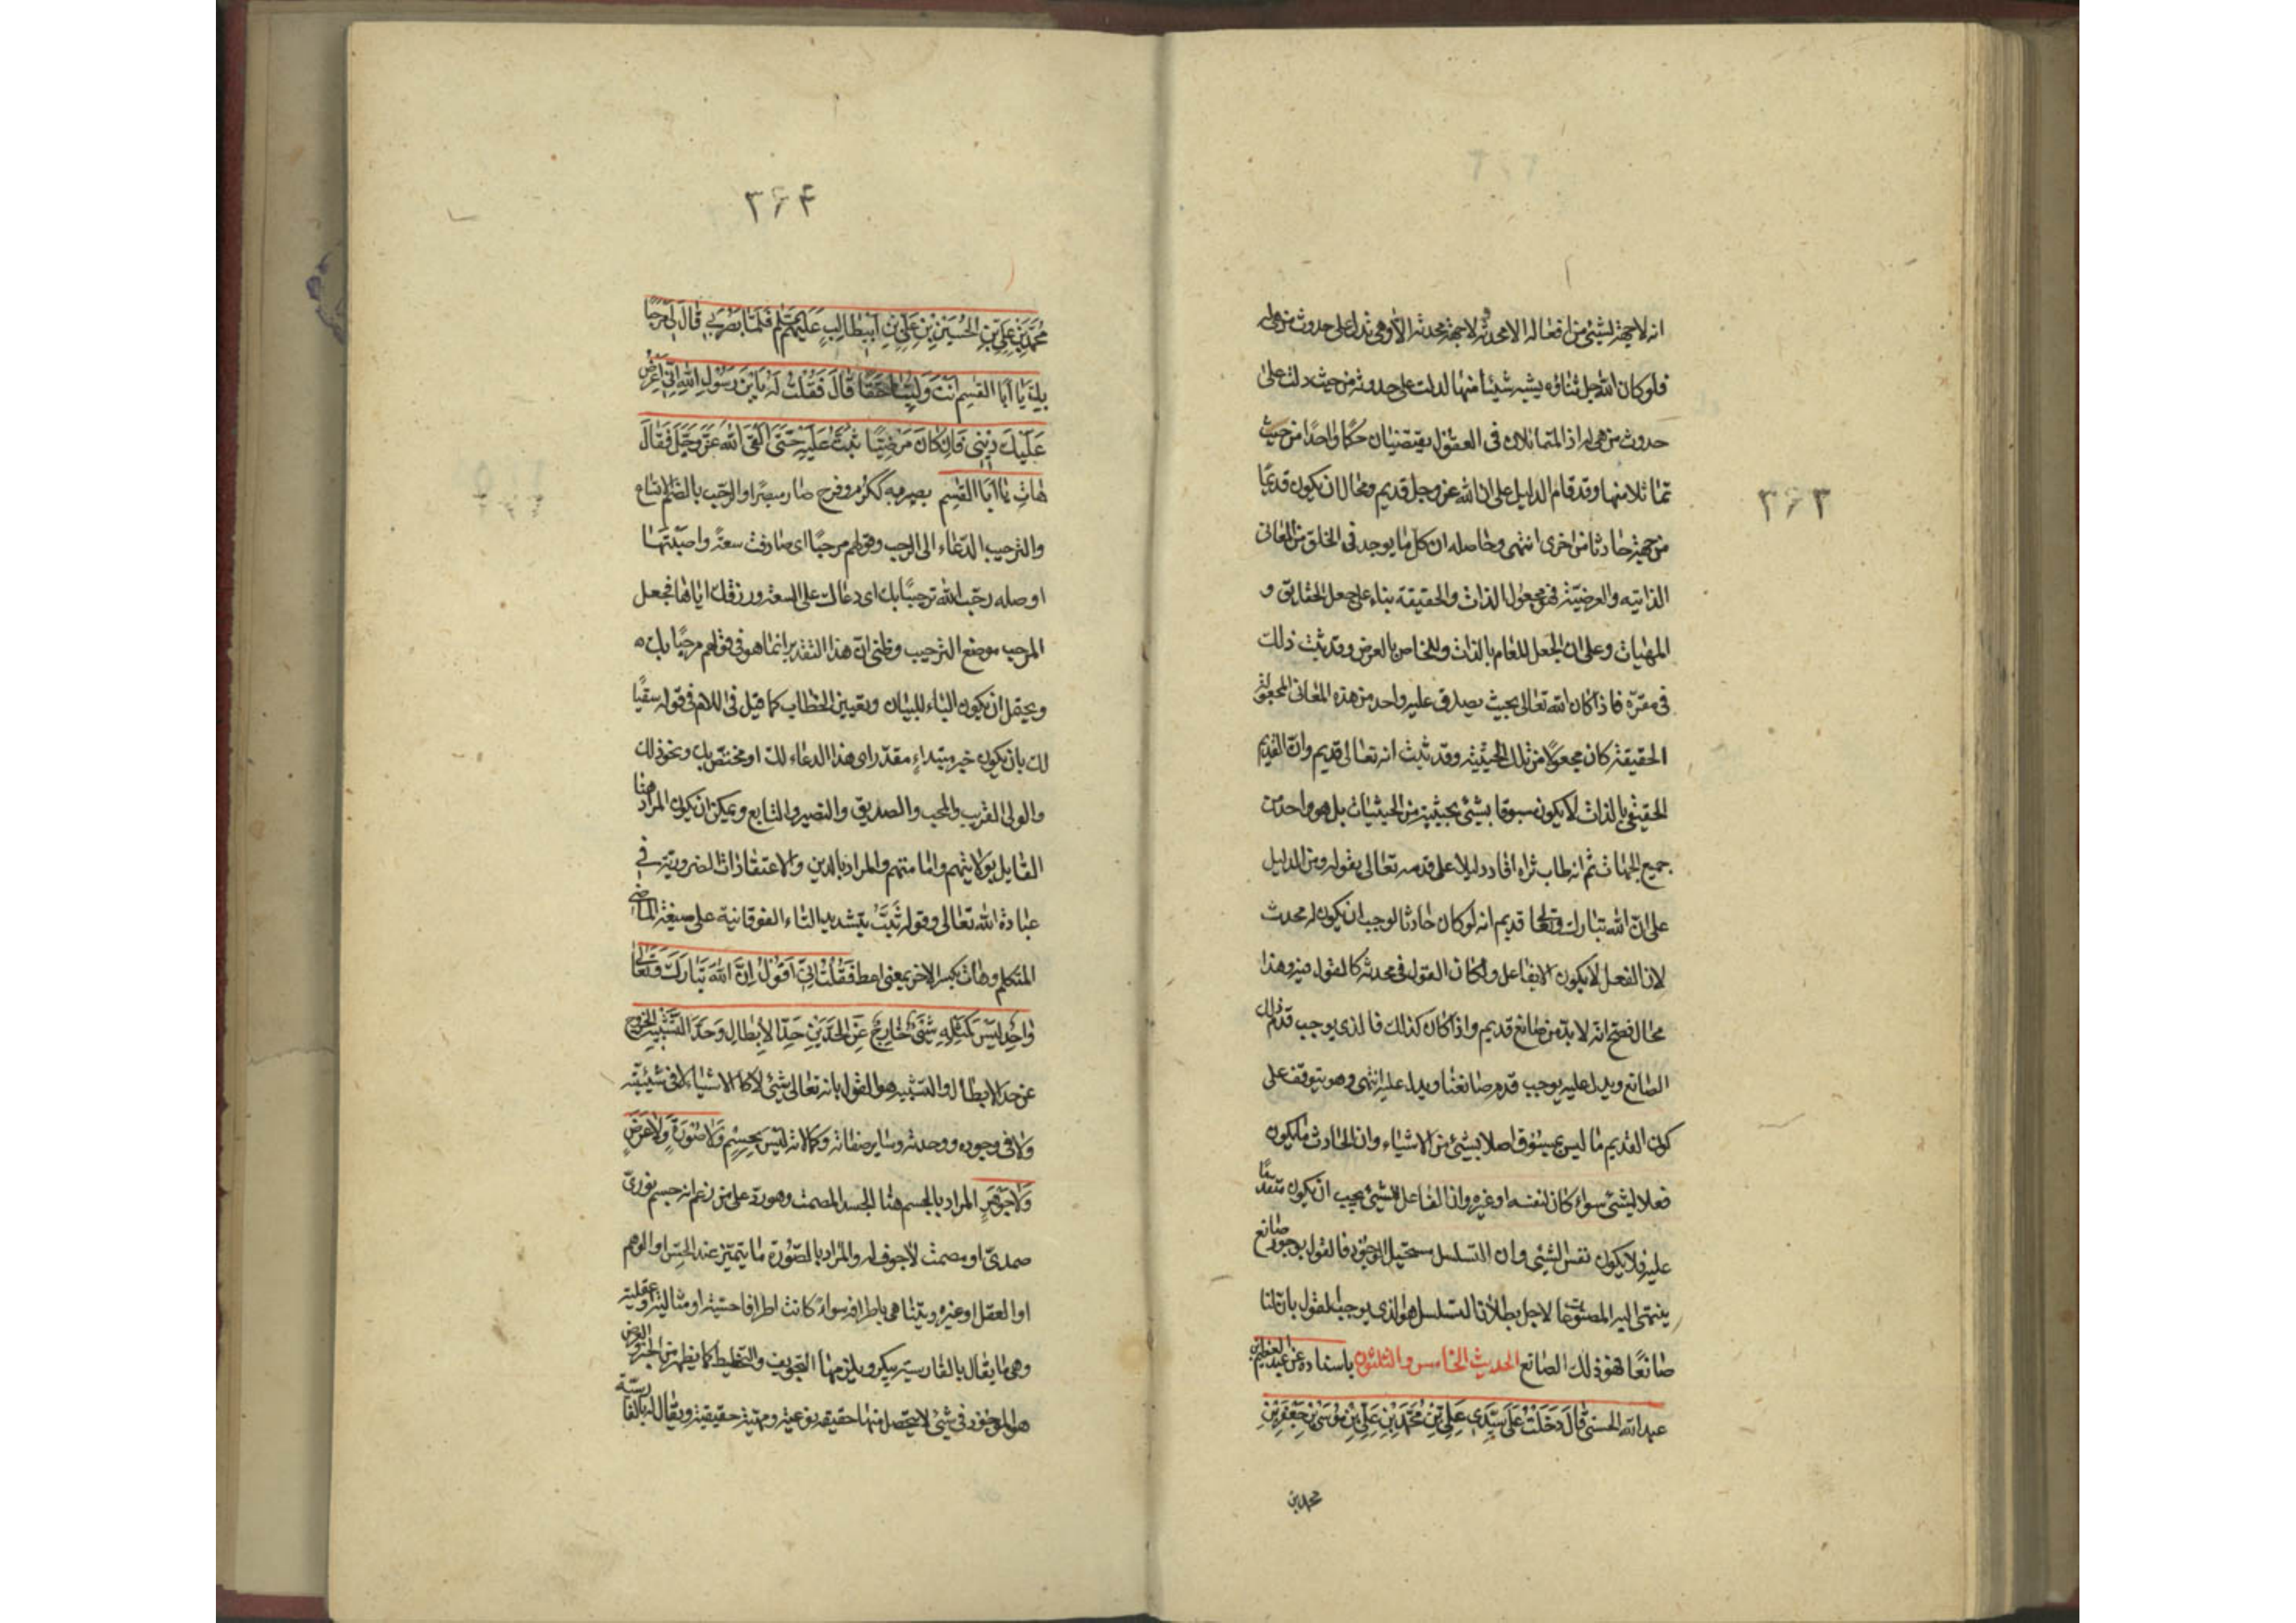 ٣٦٣
انه لا جهة لشيء من افعاله الا محدثة ولا جهة محدثة الا وهي تدل على حدوث من هي له
فلو كان الله جل ثناؤه يشبه شيئا منها لدلت على حدوثه من حيث دلت على
حدوث من هي له اذ المتماثلان فى العقول يقتضيان حكما واحدا من حيث
تماثلا منها وقد قام الدليل على ان الله عز وجل قديم ومحال ان يكون قديما
من جهة حادثا من اخرى انتهى وحاصله ان كل ما يوجد فى الخلق من المعانى
الذاتيه والعرضيّة فهو مجعول الذات والحقيقة بناء على جعل الحقايق و
المهيات وعلى ان الجعل للعام بالذات وللخاص بالعرض وقد ثبت ذلك
فى مقرّه فاذا كان الله تعالى بحيث يصدق عليه واحد من هذه المعانى المجعولة
الحقيقة كان مجعولا من تلك الحيثية وقد ثبت انه تعالى قديم وانّ القديم
الحقيقي بالذات لا يكون مسبوقا بشئ بحيثية من الحيثيات بل هو واحد من
جميع الجهات ثم انه طاب ثراه افاد دليلا على قدمه تعالى بقوله ومن الدليل
على انّ الله تبارك وتعالى قديم انه لو كان حادثا لوجب ان يكون له محدث
لان الفعل لا يكون الا بفاعل ولكان القول فى محدثه كالقول فيه وهذا
محال فصح انه لا بدّ من صانع قديم واذا كان كذلك فالذى يوجب قدم ذلك
الصانع ويدل عليه يوجب قدم صانعنا ويدل عليه انتهى وهو يتوقف على
كون القديم ما ليس بمسبوق اصلا بشئ من الاشياء وان الحادث ما يكون
فعلا لشئ سواء كان لنفسه او غيره وان الفاعل للشئ يجب ان يكون متقدما
عليه فلا يكون نفس الشئ وان التسلسل مستحيل الوجود فالقول بوجود صانع
ينتهى اليه المصنوعات لاجل بطلان التسلسل هو الذى يوجب القول بان لنا
صانعًا فهو ذلك الصانع الحديث الخامس والثلثون باسناده عن عبد العظيم بن
عبد الله الحسنى قَالَ دَخَلْتُ عَلَى سَيِّدِي عَلِيِّ بْنِ مُحَمَّدِ بْنِ عَلِيِّ بْنِ مُوسَى بْنِ جَعْفَرِ بْنِ
محمد بن
٣٦٤
مُحَمَّدِ بْنِ عَلِيِّ بْنِ الْحُسَيْنِ بْنِ عَلِيِّ بْنِ اَبِيطَالِبٍ عَلَيْهِمُ السَّلَم فَلَمَّا بَصُرَ بِي قَالَ لِي مَرْحَبًا
بِكَ يَا اَبَا الْقسِمِ اَنْتَ وَلِيُّنَا حَقًّا قَالَ فَقُلْتُ لَهُ يَا بْنَ رَسُولِ اللهِ اِنِّي اُرِيدُ اَنْ اَعْرِضَ
عَلَيْكَ دِينِي فَاِنْ كَانَ مَرْضِيًّا ثَبَتُّ عَلَيْهِ حَتَّى اَلْقَى اللهَ عَزَّ وَجَلَّ فَقَالَ
هَاتِ يَا اَبَا الْقسِمِ بصر به ككرم وفرح صار مبصرا والرحب بالضم الاتساع
والترحيب الدّعاء الى الرحب وقولهم مرحبًا اى صادفت سعةً واصبتها
او صله رحّب الله ترحيبًا بك اى دعا لك على السعة ورزقك اياها فجعل
المرحب موضع الترحيب وظنى ان هذا التقدير انما هو فى قولهم مرحبًا بك
ويحتمل ان يكون الباء للبيان وتعيين الخطاب كما قيل فى اللام فى قوله سقيًا
لك بان يكون خبر مبتداء مقدر اى هذا الدعاء لك او مختصّ بك ونحو ذلك
والولى القريب والمحب والصديق والنصير والتابع ويمكن ان يكون المراد هنا
القايل بولايتهم وامامتهم والمراد بالدين والاعتقادات الضروريّة فى
عبادة الله تعالى وقوله ثَبَتُّ بتشديد التاء الفوقانية على صيغة الماضى
المتكلم وهات بكسر الاخر بمعنى اعط فَقُلْتُ اِنِّي اَقُولُ اِنَّ اللهَ تَبَارَكَ وَتَعَالَى
وَاحِدٌ لَيْسَ كَمِثْلِهِ شَيْءٌ خَارِجٌ عَنِ الْحَدَّيْنِ حَدِّ الْاِبْطَالِ وَحَدِّ التَّشْبِيهِ الخروج
عن حد الابطال والتشبيه هو القول بانه تعالى شئ لا كالاشياء لا فى شيئيته
ولا فى وجوده ووحدته وساير صفاته وكمالاته لَيْسَ بِجِسْمٍ وَلَا صُورَةٍ وَلَا عَرَضٍ
وَلَا جَوْهَرٍ المراد بالجسم هنا الجسد المصمت وهو ردّ على من زعم انه جسم نورىّ
صمدىّ او مصمت لا جوف له والمراد بالصّورة ما يتميّز عند الحسّ او الوهم
او العقل او غيره ويتناهى باطرافه سواء كانت اطرافا حسّية او مثالية او عقلية
وهى ما يقال بالفارسيّة پيكر ويلزمها التجويف والتخطيط كما يظهر من الخبر والعرض
هو الموجود فى شئ لا يتحصل منها حقيقة نوعية ومهيّة حقيقية ويقال له بالفارسيّة